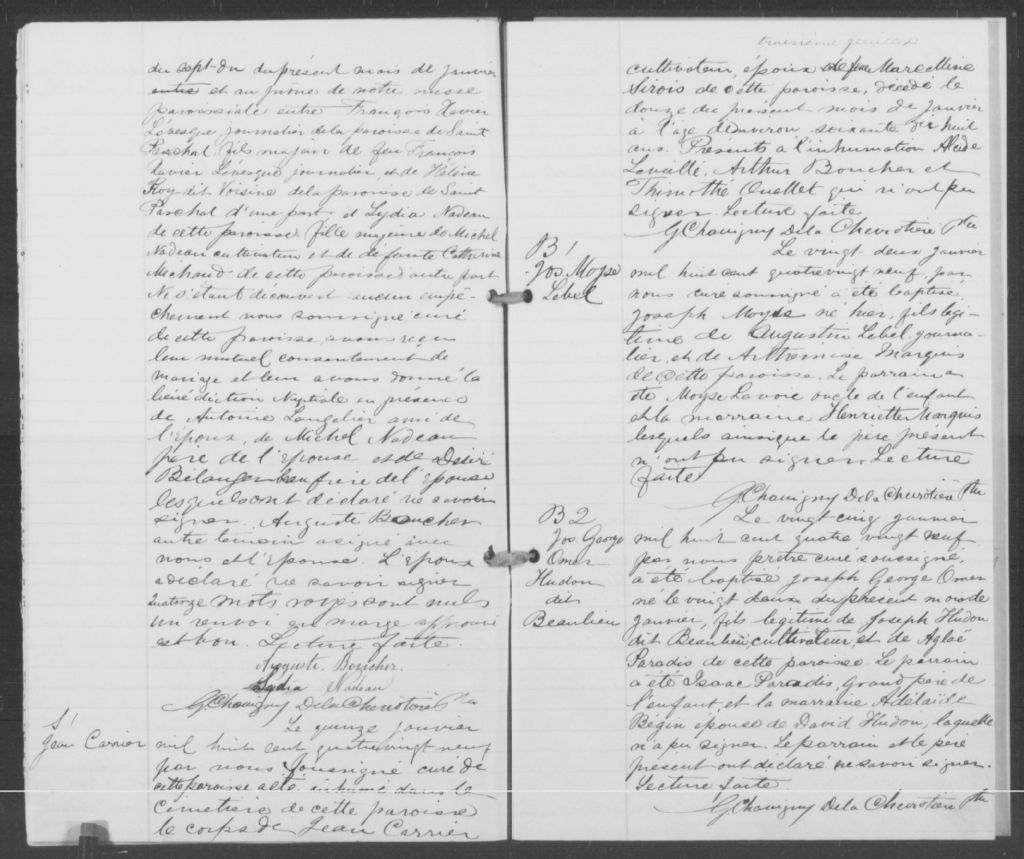 du sept du du présent mois de Janvier
entre et au prone de notre messe
paroissiale entre François Xavier
Lévesque journalier de la paroisse de Saint
Paschal, fils majeur de feu François
Xavier Lévesque journalier, et de Hélène
Roy dit Voisine de la paroisse de Saint
Paschal d'une part, et Lydia Nadeau
de cette paroisse fille majeure de Michel
Nadeau cultivateur et de défunte Catherine
Michaud de cette paroisse d'autre part
Ne s'étant découvert aucun empê-
chement nous soussigné curé
de cette paroisse, avons reçu
leur mutuel consentement de
mariage et leur avons donné la
bénédiction Nuptiale en présence
de Antoine Langelier ami de
l'époux, de Michel Nadeau
père de l'épouse et de Désiré
Bélanger beaufrère de l'épouse
lesquels ont déclaré ne savoir
signer. Auguste Boucher
autre témoin a signé avec
nous et l'épouse. L'époux
a déclaré ne savoir signer
quatorze mots rayés sont nuls
un renvoi en marge approuvé
est bon. Lecture faite.
Auguste Boucher.
Lydia Nadeau
G Chauvigny De la Chevrotière Ptre
S1
Jean Carrier
Le quinze janvier
mil huit cent quatrevingt neuf
par nous soussigné curé de
cette paroisse a été inhumé dans le
cimetière de cette paroisse
le corps de Jean Carrier
troisième feuillet
cultivateur, époux de feue Marcelline
Sirois de cette paroisse, décédé le
douze du présent mois de janvier
à l'âge d'environ soixante dix huit
ans. Présents à l'inhumation Alcide
Lavallée, Arthur Boucher et
Thimothé Ouellet qui n'ont pu
signer. Lecture faite
G Chauvigny De la Chevrotière Ptre
B1
Jos. Moyse
Lebel
Le vingt deux janvier
mil huit cent quatrevingt neuf, par
nous curé soussigné a été baptisé
Joseph Moyse né hier, fils légi-
time de Augustin Lebel journa-
lier, et de Arthémise Marquis
de cette paroisse. Le parrain a
été Moyse Lavoie oncle de l'enfant
et la marraine Henriette Marquis
lesquels ainsi que le père présent
n'ont pu signer. Lecture
faite
G Chauvigny De la Chevrotière Ptre
B2
Jos. George
Omer
Hudon
dit
Beaulieu
Le vingt cinq janvier
mil huit cent quatre vingt neuf
par nous prêtre curé soussigné
a été baptisé Joseph George Omer
né le vingt deux du présent mois de
janvier, fils légitime de Joseph Hudon
dit Beaulieu, cultivateur, et de Aglaé
Paradis de cette paroisse. Le parrain
a été Isaac Paradis, grand père de
l'enfant, et la marraine Adélaïde
Bégin épouse de David Hudon, laquelle
n'a pu signer. Le parrain et le père
présent ont déclaré ne savoir signer.
Lecture faite.
G Chauvigny De la Chevrotière Ptre